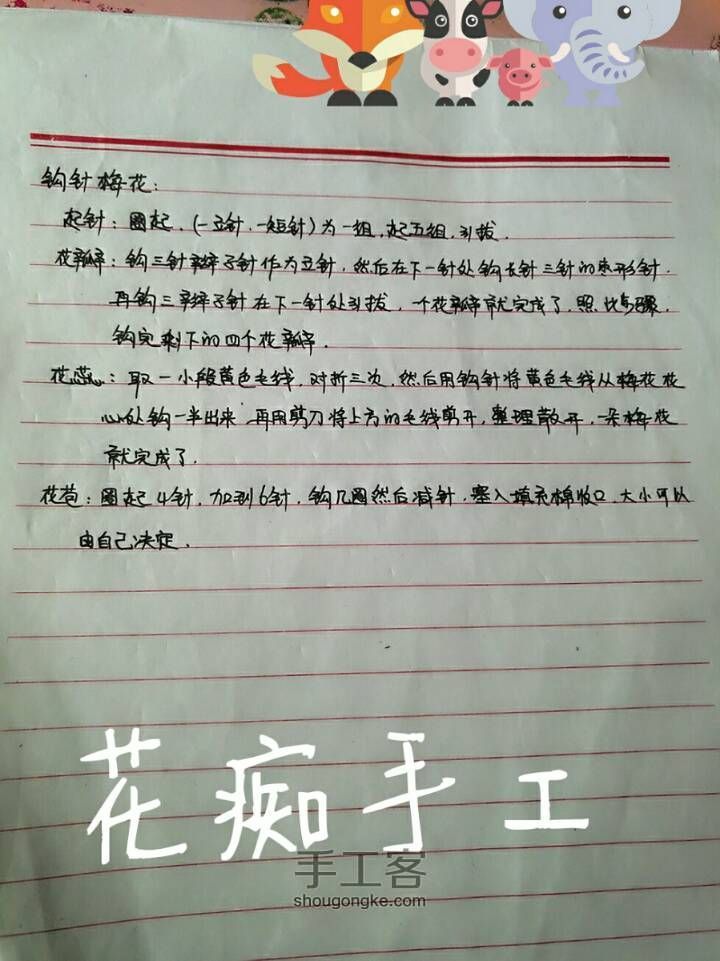 钩针梅花：
起针：圈起，(一立针，一短针)为一组，起五组，引拔．
花瓣：钩三针辫子针作为立针，然后在下一针处钩长针三针的枣形针．
再钩三辫子针在下一针处引拔，一个花瓣就完成了．照此步骤，
钩完剩下的四个花瓣．
花蕊：取一小段黄色毛线，对折三次，然后用钩针将黄色毛线从梅花花
心处钩一半出来 再用剪刀将上方的毛线剪开，整理散开，一朵梅花
就完成了．
花苞：圈起4针，加到6针，钩几圈然后减针，塞入填充棉收口．大小可以
由自己决定．
花痴手工
手工客
shougongke.com